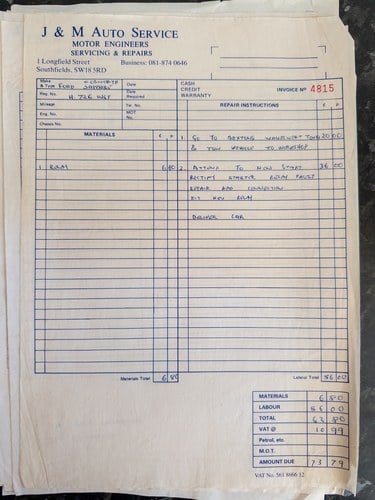 J & M AUTO SERVICE
MOTOR ENGINEERS
SERVICING & REPAIRS
1 Longfield Street
Southfields, SW18 5RD
Business: 081-874 0646
Make & Type FORD
Date
CASH
CREDIT
WARRANTY
INVOICE Nº 4815
Reg. No.
Date Required
Mileage
Tel. No.
REPAIR INSTRUCTIONS
£ P
Eng. No.
MOT No.
Chassis No.
MATERIALS
£ P
1 GO TO 20 00
& TOW VEHICLE TO WORKSHOP
1 RELAY 6 80
2 ATTEND TO NON START 36 00
RECTIFY STARTER RELAY FAULT
REPAIR CONNECTION
FIT NEW RELAY
DELIVER CAR
Materials Total 6 80
Labour Total 56 00
MATERIALS 6 80
LABOUR 56 00
TOTAL 62 80
VAT @ 10 99
Petrol, etc.
M.O.T.
AMOUNT DUE 73 79
VAT No. 561 8666 12